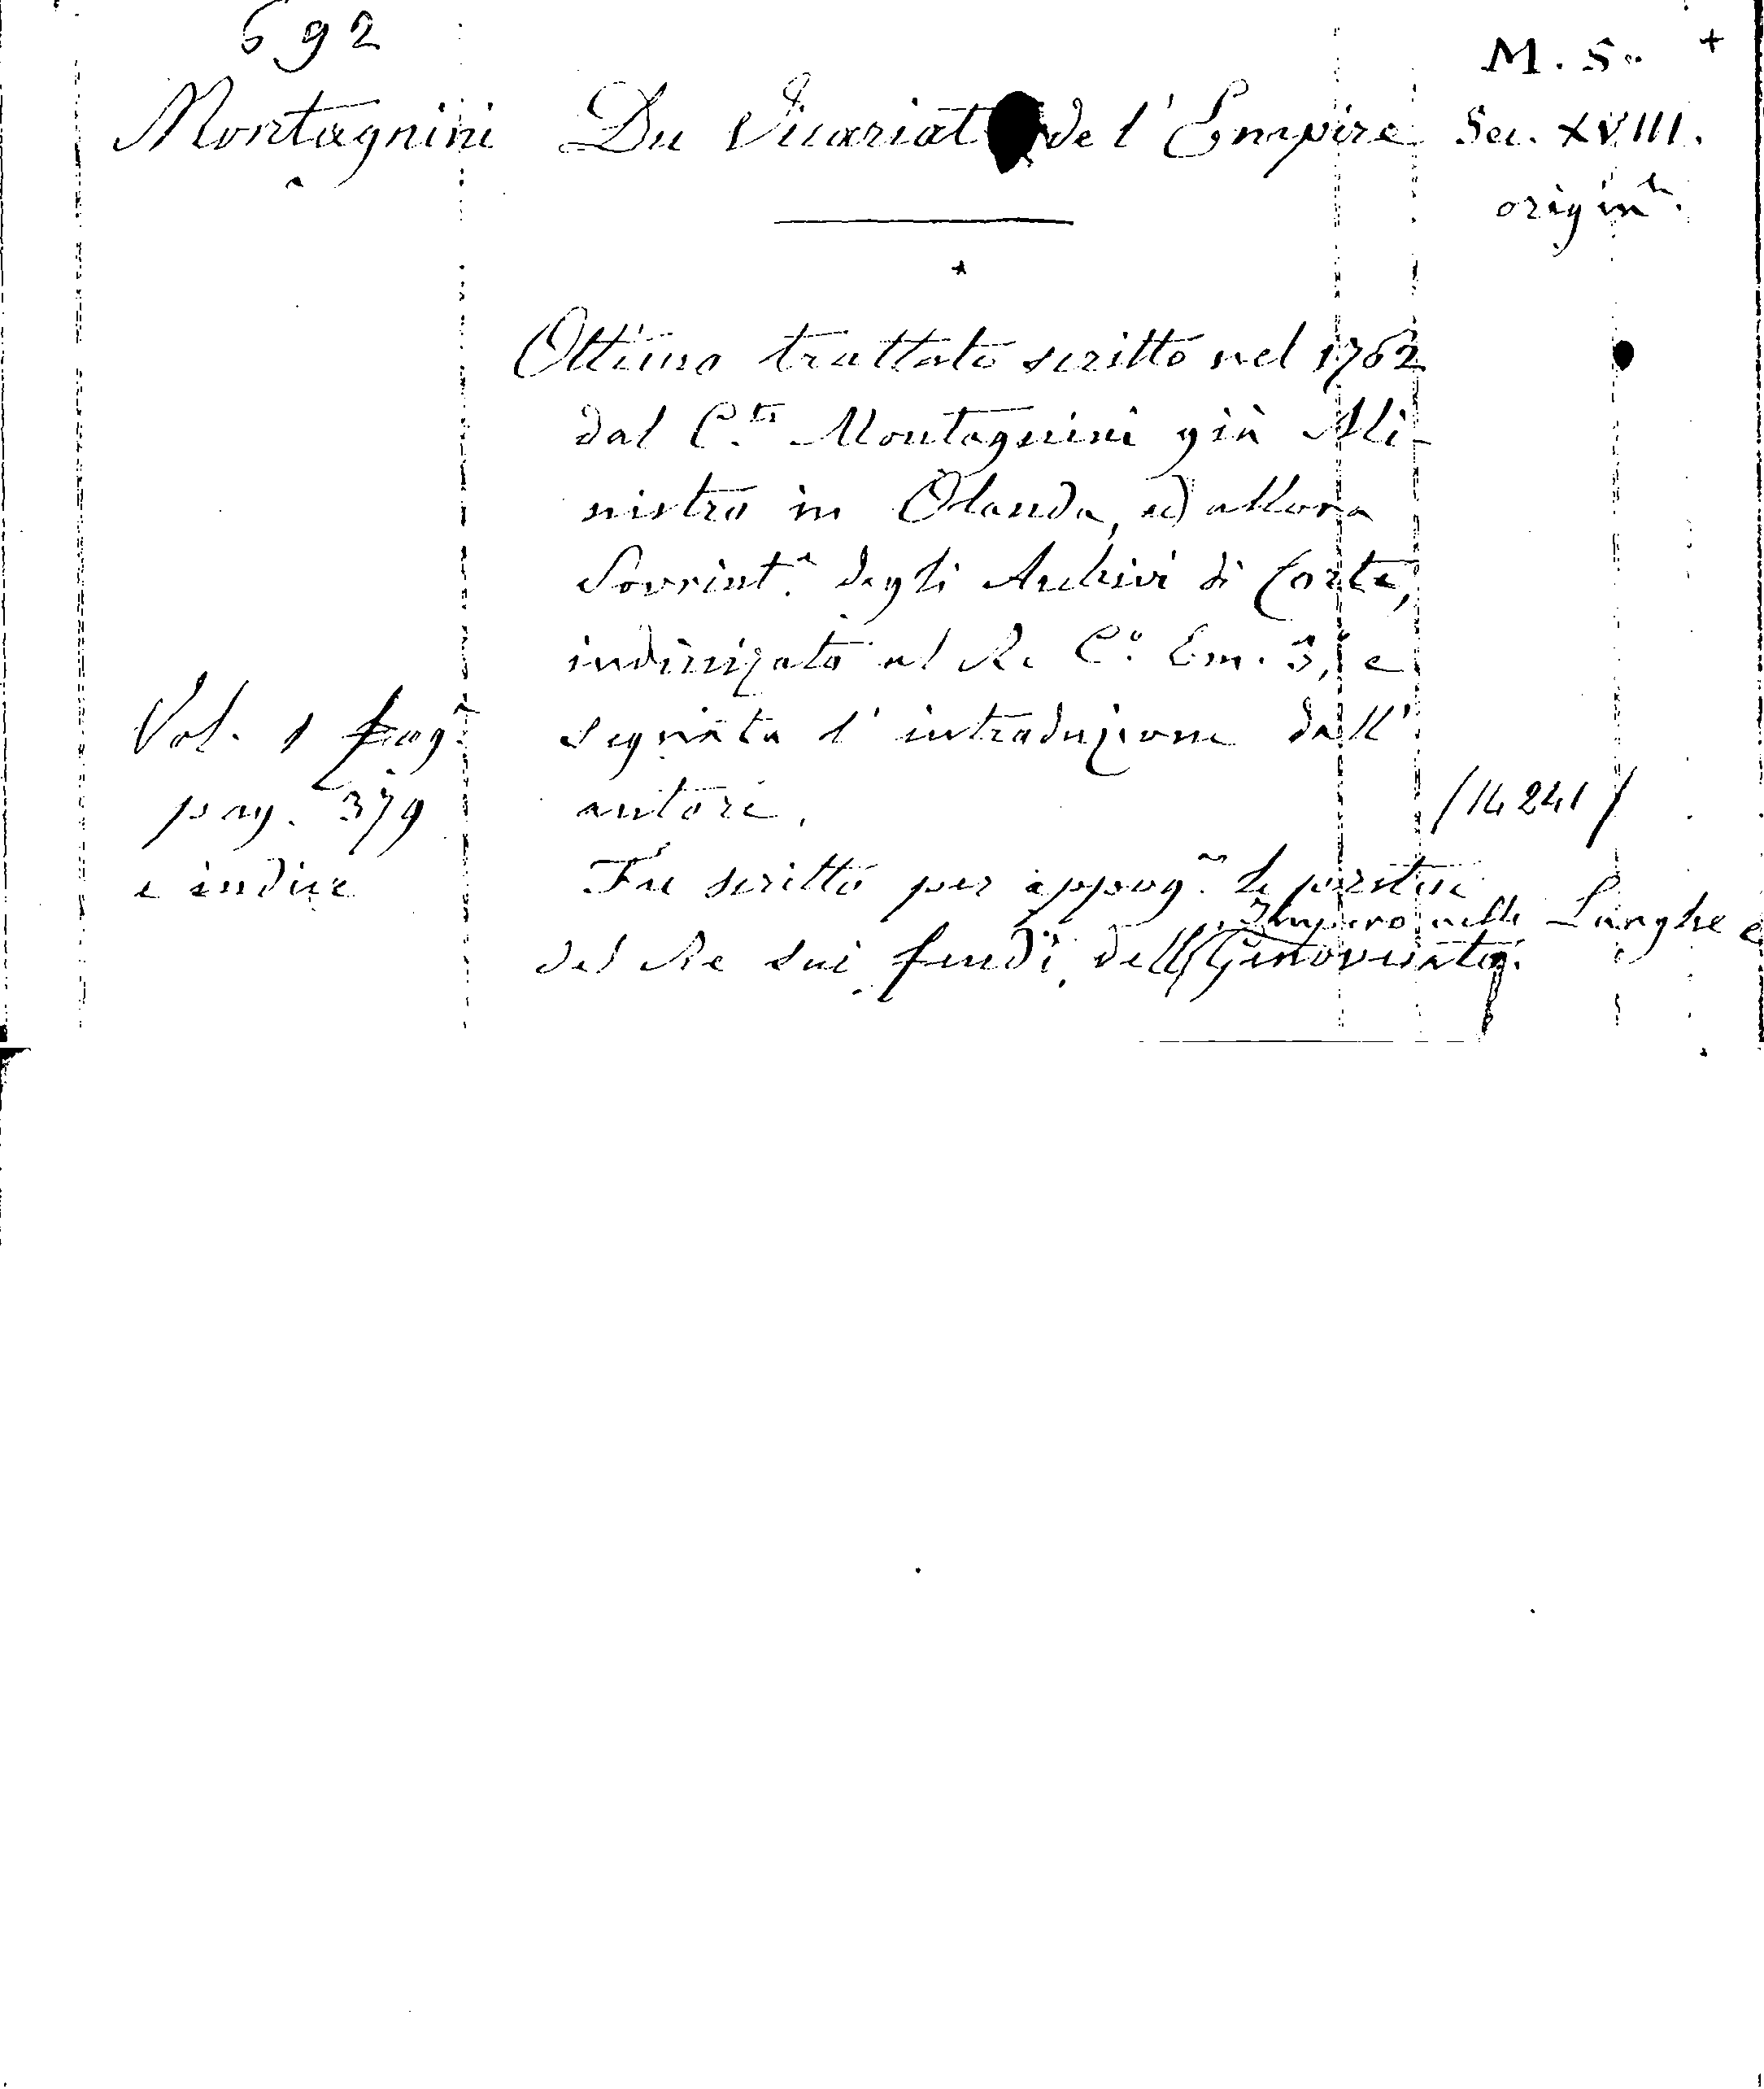 692
M. S. +
Montagnini Du Vicariat de l'Empire Sec. XVIII.
origin.le
Ottimo trattato scritto nel 1762
dal C.te Montagnini già Mi-
nistro in Olanda, ed allora
Sovrint.e degli Archivi di Corte,
indirizzato al Re C.o Em. 3, e
segnata l'introduzione dall'
autore.
Vol. 1 fog.
pag. 379
e indice
(14241)
Fu scritto per appog. le pretese
del Re sui feudi dell'Impero nelle Langhe e
Genovesato.